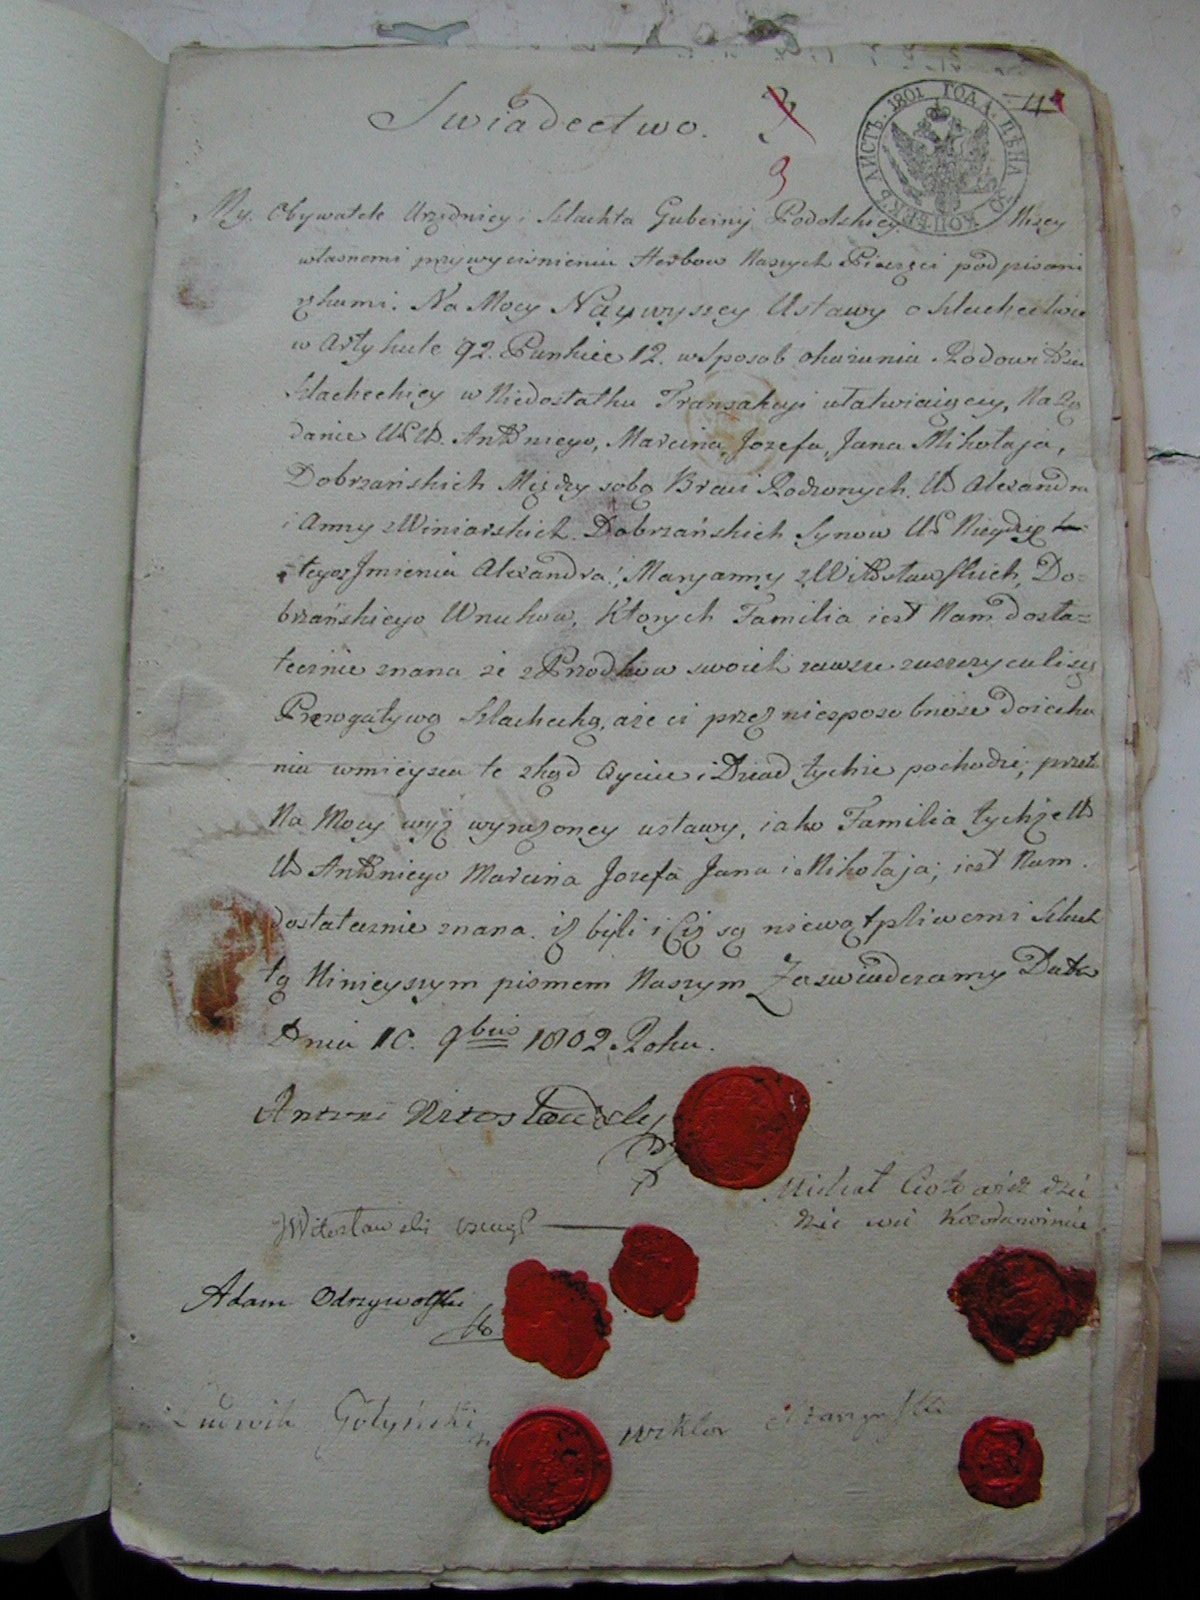 Swiadectwo.
3
4
9
ЛИСТЪ. 1801 ГОДА. ЦѢНА 30 КОПѢЕКЪ
My. Obywatele Urzędnicy i Szlachta Gubernij Podolskiey Nizey
własnemi przy wyciśnieniu Herbow Naszych Pieczęci podpisani
rękami. Na Mocy Naywyzszey Ustawy o Szlachectwie
w Artykule 92. Punkcie 12. w Sposob okazania Rodowitosci
Szlacheckiey w Niedostatku Transakcyi ułatwiaiącey, Na Żą
danie WW. Antoniego, Marcina, Jozefa, Jana Mikołaja,
Dobrzańskich Między sobą Braci Rodzonych. W Alexandra
i Anny z Winiarskich. Dobrzańskich Synow W Niegdyś
tegoz Jmienia Alexandra i Maryanny z Witosławskich, Do=
brzańskiego Wnukow, Ktorych Familia iest Nam dosta=
tecznie znana że z Przodkow swoich zawsze zaszczycali się
Prerogatywą Szlachecką, aże ci przez niesposobnośc doiecha
nia w mieysca te zkąd Oyciec i Dziad tychże pochodzi; przeto
Na Mocy wyż wyrażoney ustawy, iako Familia tychże W
W Antoniego Marcina Jozefa Jana i Mikołaja; iest Nam.
dostatecznie znana. iż byli i Ciż są niewątpliwemi Szlach
tą Ninieyszym pismem Naszym Zaswiadczamy Dato
Dnia 10. 9bris 1802 Roku.
Antoni Witosławsky
Michał
Witosławski
Adam Odrzywolski
Ludwik Gołyński
Wiktor